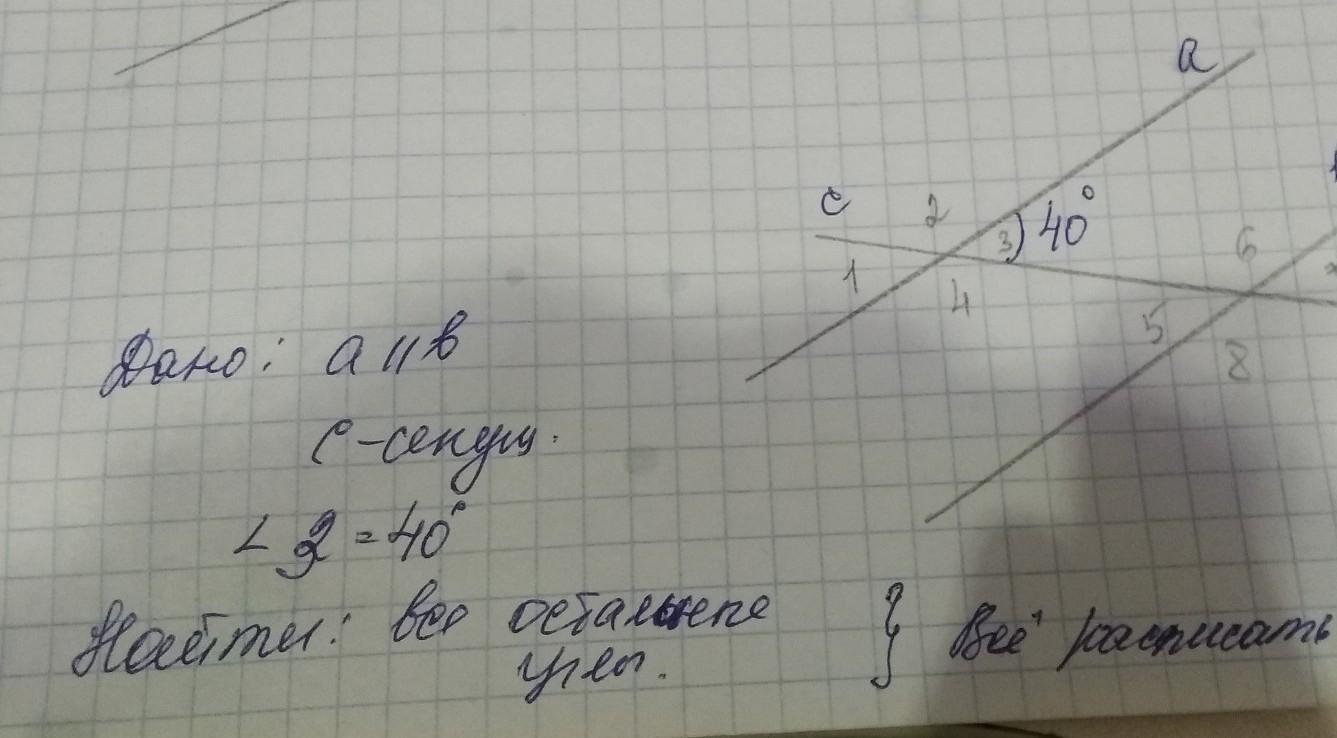 a
c 2 3) 40°
6
1 4
5
8
Дано: a || b
c - секущ.
∠ 3 = 40°
Найти: все остальные } Всё расписать
углы.